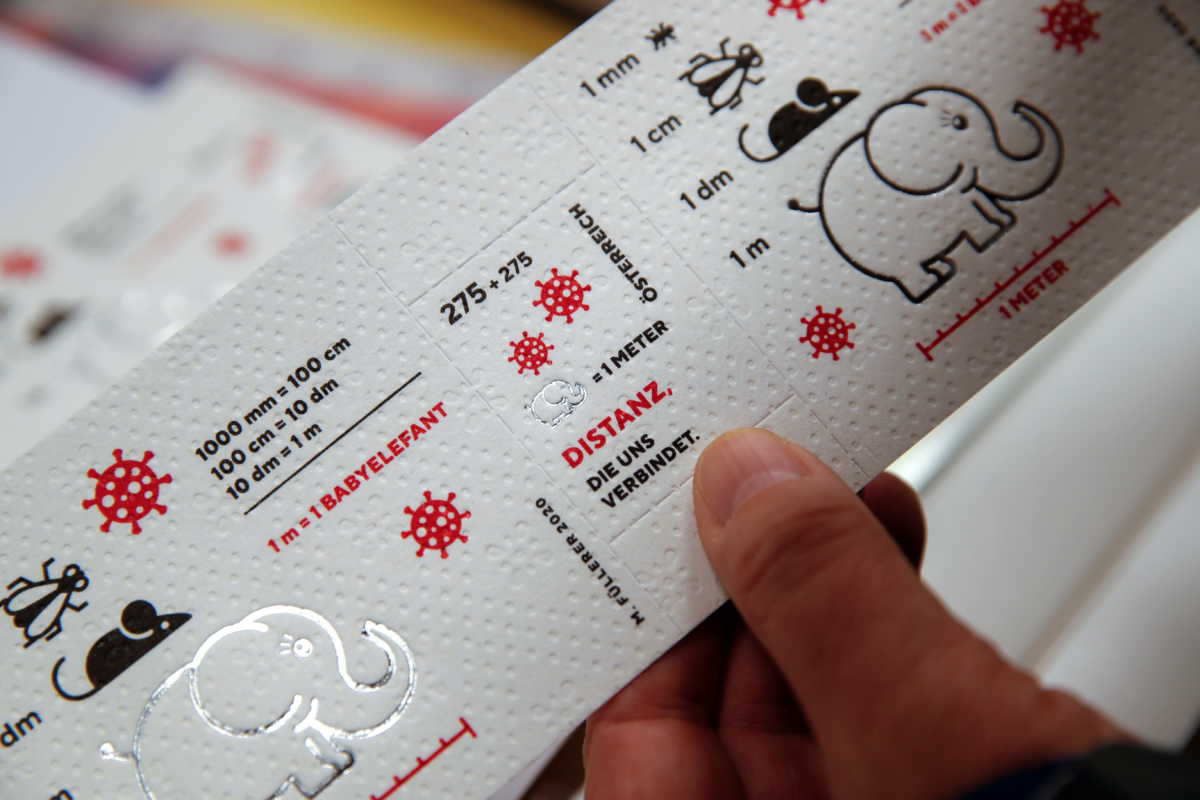 1 mm
1 cm
1 dm
1 m
1 METER
275 + 275
ÖSTERREICH
= 1 METER
DISTANZ,
DIE UNS
VERBINDET.
M. FÜLLERER 2020
1000 mm = 100 cm
100 cm = 10 dm
10 dm = 1 m
1 m = 1 BABYELEFANT
dm